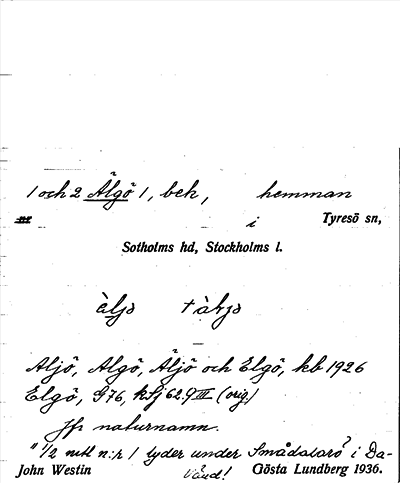 1 och 2 Älgö 1, bek, hemman
i Tyresö sn,
Sotholms hd, Stockholms l.
Aljö, Algö, Äljö och Elgö, kb 1926
Elgö, G76, ksj 62.9 III (orig)
Jfr naturnamn.
" 1/2 mtl n:r 1 lyder under Smådalarö? i Da-
John Westin Gösta Lundberg 1936.